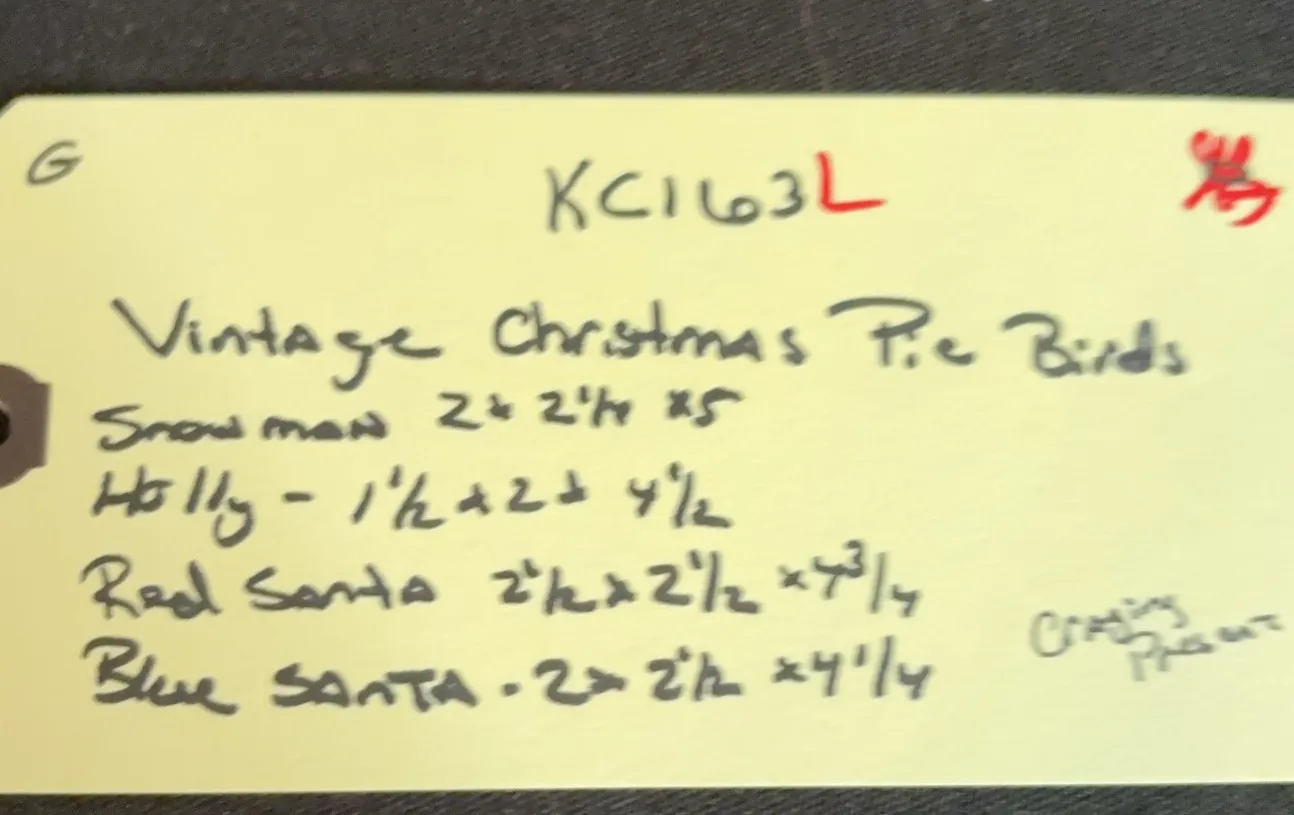 G
KC163L
Vintage Christmas Pie Birds
Snowman 2 x 2 1/4 x 5
Holly - 1 1/2 x 2 x 4 1/2
Red Santa 2 1/2 x 2 1/2 x 4 3/4
Blue SANTA - 2 x 2 1/2 x 4 1/4
Crazing
Present